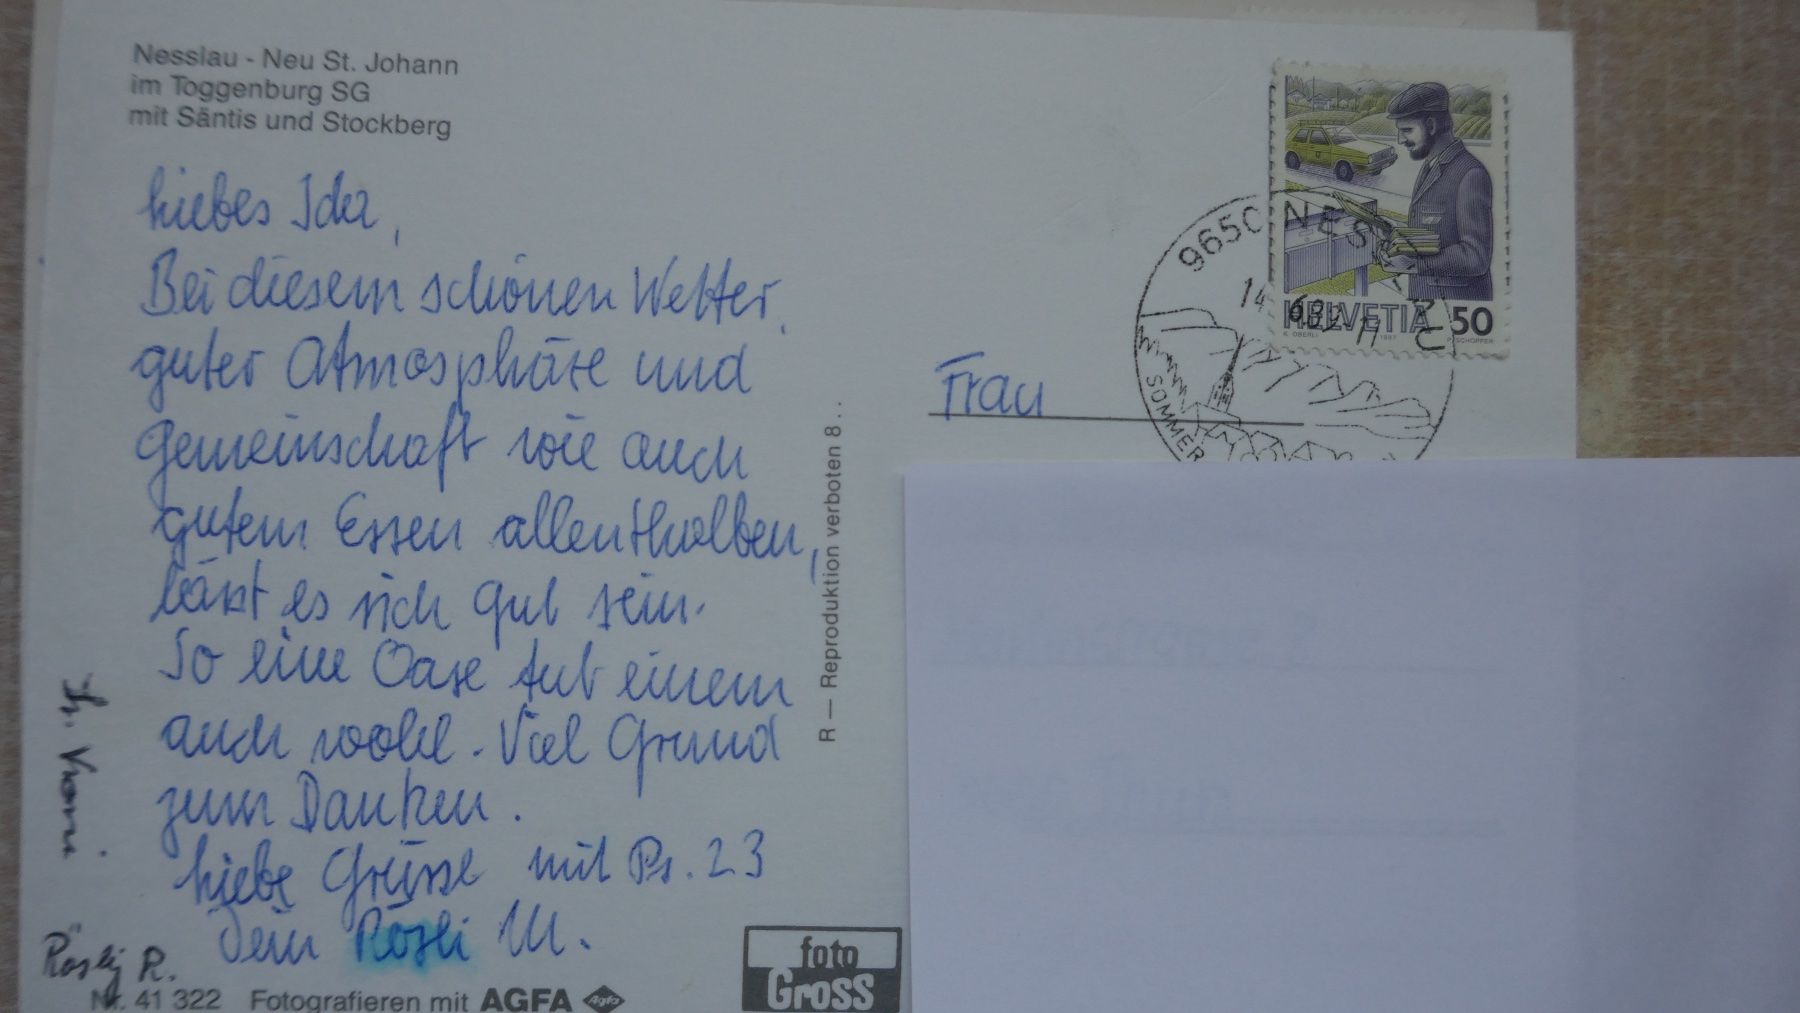 Nesslau - Neu St. Johann
im Toggenburg SG
mit Säntis und Stockberg
Liebes Ida,
Bei diesem schönen Wetter,
guter Atmosphäre und
Gemeinschaft wie auch
gutem Essen allenthalben,
lässt es sich gut sein.
So eine Oase tut einem
auch wohl. Viel Grund
zum Danken.
Liebe Grüsse mit Ps. 23
Dein Rösli M.
Rösly R.
Nr. 41 322 Fotografieren mit AGFA Agfa
foto
Gross
R — Reproduktion verboten 8..
HELVETIA 50
K. OBERLI 1987 P. SCHOPFER
9650 NES
14
SOMMER
Frau